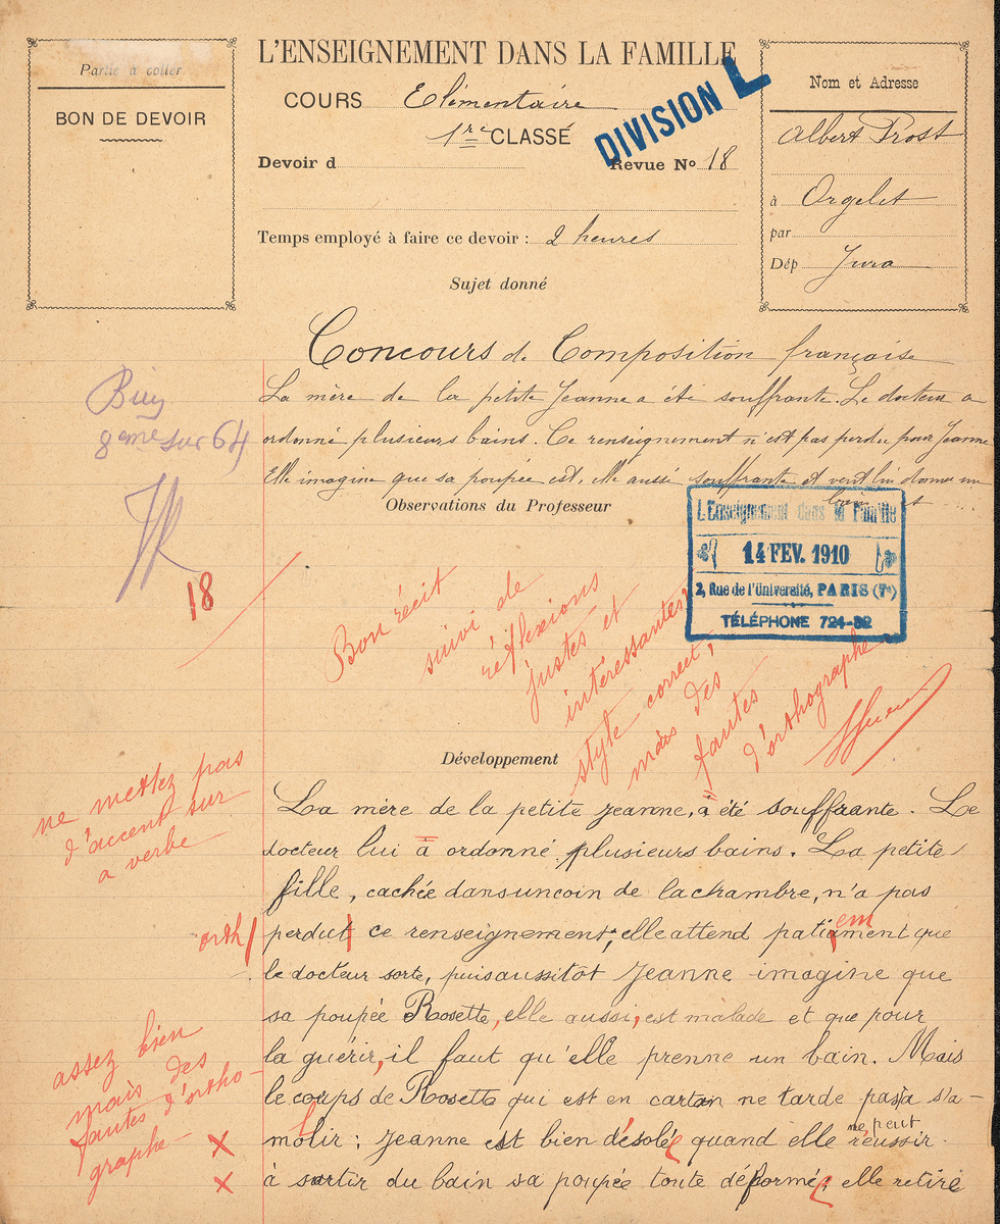 Partie à coller
BON DE DEVOIR
L'ENSEIGNEMENT DANS LA FAMILLE
COURS Elémentaire
1re CLASSE
DIVISION L
Devoir d
Revue No 18
Temps employé à faire ce devoir : 2 heures
Sujet donné
Nom et Adresse
Albert Prost
à Orgelet
par
Dép Jura
Concours de Composition française
La mère de la petite Jeanne a été souffrante. Le docteur a
ordonné plusieurs bains. Ce renseignement n'est pas perdu pour Jeanne
Elle imagine que sa poupée est, elle aussi souffrante et veut lui donner un
bain et ....
Bien
8eme sur 64
18
Observations du Professeur
L'Enseignement dans la Famille
14 FEV. 1910
2, Rue de l'Université, PARIS (7e)
TÉLÉPHONE 724-82
Bon récit
suivi de
réflexions
justes et
intéressantes
style correct,
mais des
fautes
d'orthographe
Développement
ne mettez pas
d'accent sur
a verbe
La mère de la petite jeanne, a été souffrante. Le
docteur lui à ordonné plusieurs bains. La petite
fille, cachée dans un coin de la chambre, n'a pas
orth perdut ce renseignement; elle attend patiament que
em
le docteur sorte, puis aussitôt jeanne imagine que
sa poupée Rosette, elle aussi, est malade et que pour
la guérir, il faut qu'elle prenne un bain. Mais
le coups de Rosette qui est en carton ne tarde pas à s'a-
molir ; jeanne est bien désolé quand elle ne peut réussir
à sortir du bain sa poupée toute déformé; elle retire
assez bien
mais des
fautes d'ortho-
graphe